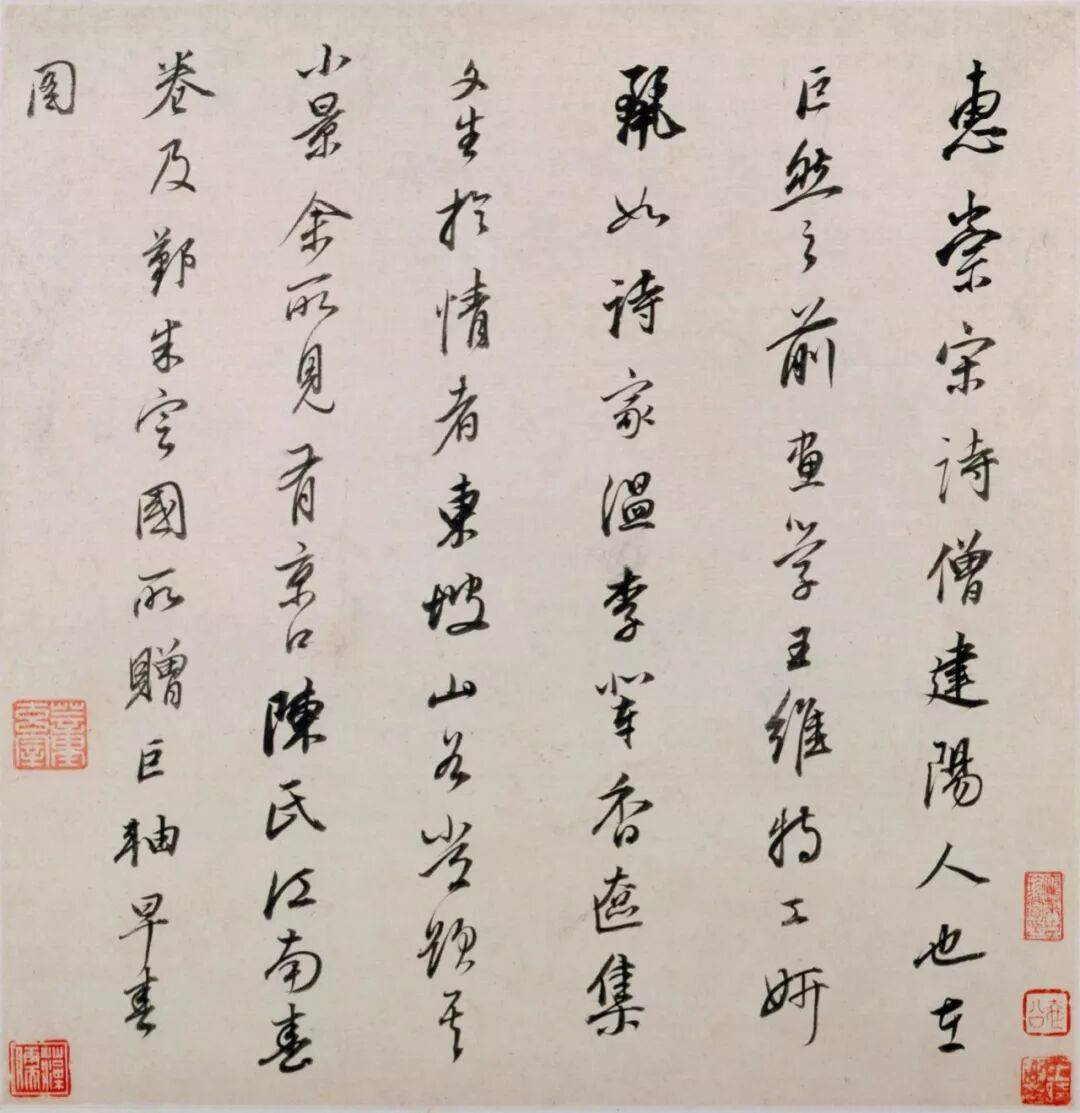 惠崇宋詩僧建陽人也在
巨然之前畫學王維特工妍
麗如詩家溫李輩香奩集
文生於情者東坡山谷嘗題其
小景余所見有京口陳氏江南春
卷及鄞朱定國所贈巨軸早春
圖